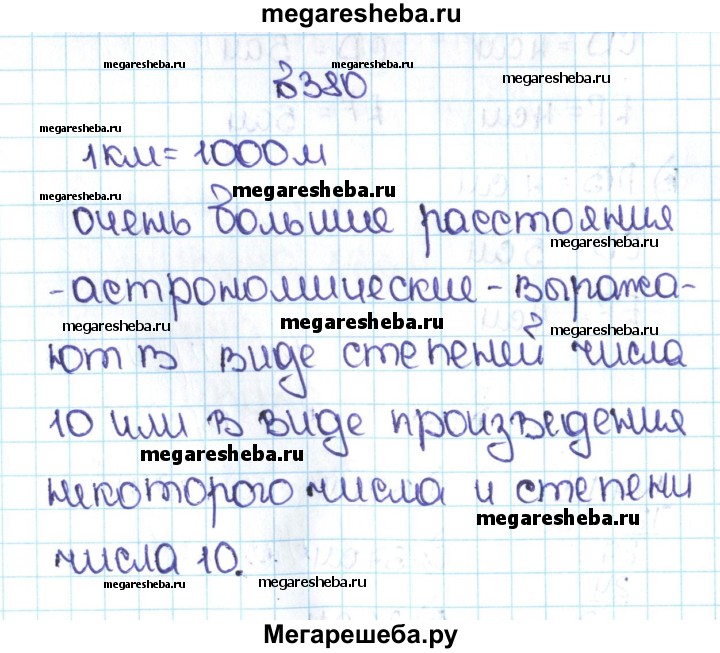 megaresheba.ru
megaresheba.ru
megaresheba.ru
megaresheba.ru
В380
megaresheba.ru
1км = 1000м
megaresheba.ru
megaresheba.ru
очень большие расстояния
megaresheba.ru
-астрономические - выража-
megaresheba.ru
megaresheba.ru
megaresheba.ru
ют в виде степеней числа
10 или в виде произведения
megaresheba.ru
некоторого числа и степени
megaresheba.ru
числа 10.
megaresheba.ru
megaresheba.ru
megaresheba.ru
Мегарешеба.ру